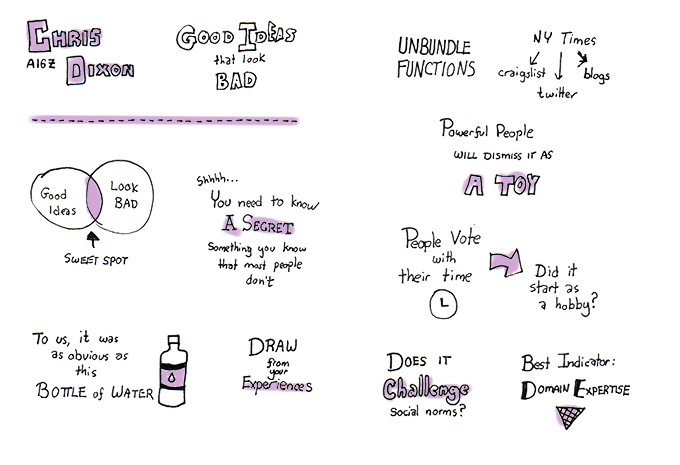 CHRIS
A16Z
DIXON
GOOD IDEAS
that look
BAD
Good
Ideas
Look
BAD
SWEET SPOT
Shhhh...
You need to know
A SECRET
Something you know
that most people
don't
To us, it was
as obvious as
this
BOTTLE of WATER
DRAW
from
your
Experiences
UNBUNDLE
FUNCTIONS
NY Times
craigslist
twitter
blogs
Powerful People
WILL DISMISS IT AS
A TOY
People Vote
with
their time
Did it
start as
a hobby?
DOES IT
Challenge
Social norms?
Best Indicator:
DOMAIN EXPERTISE